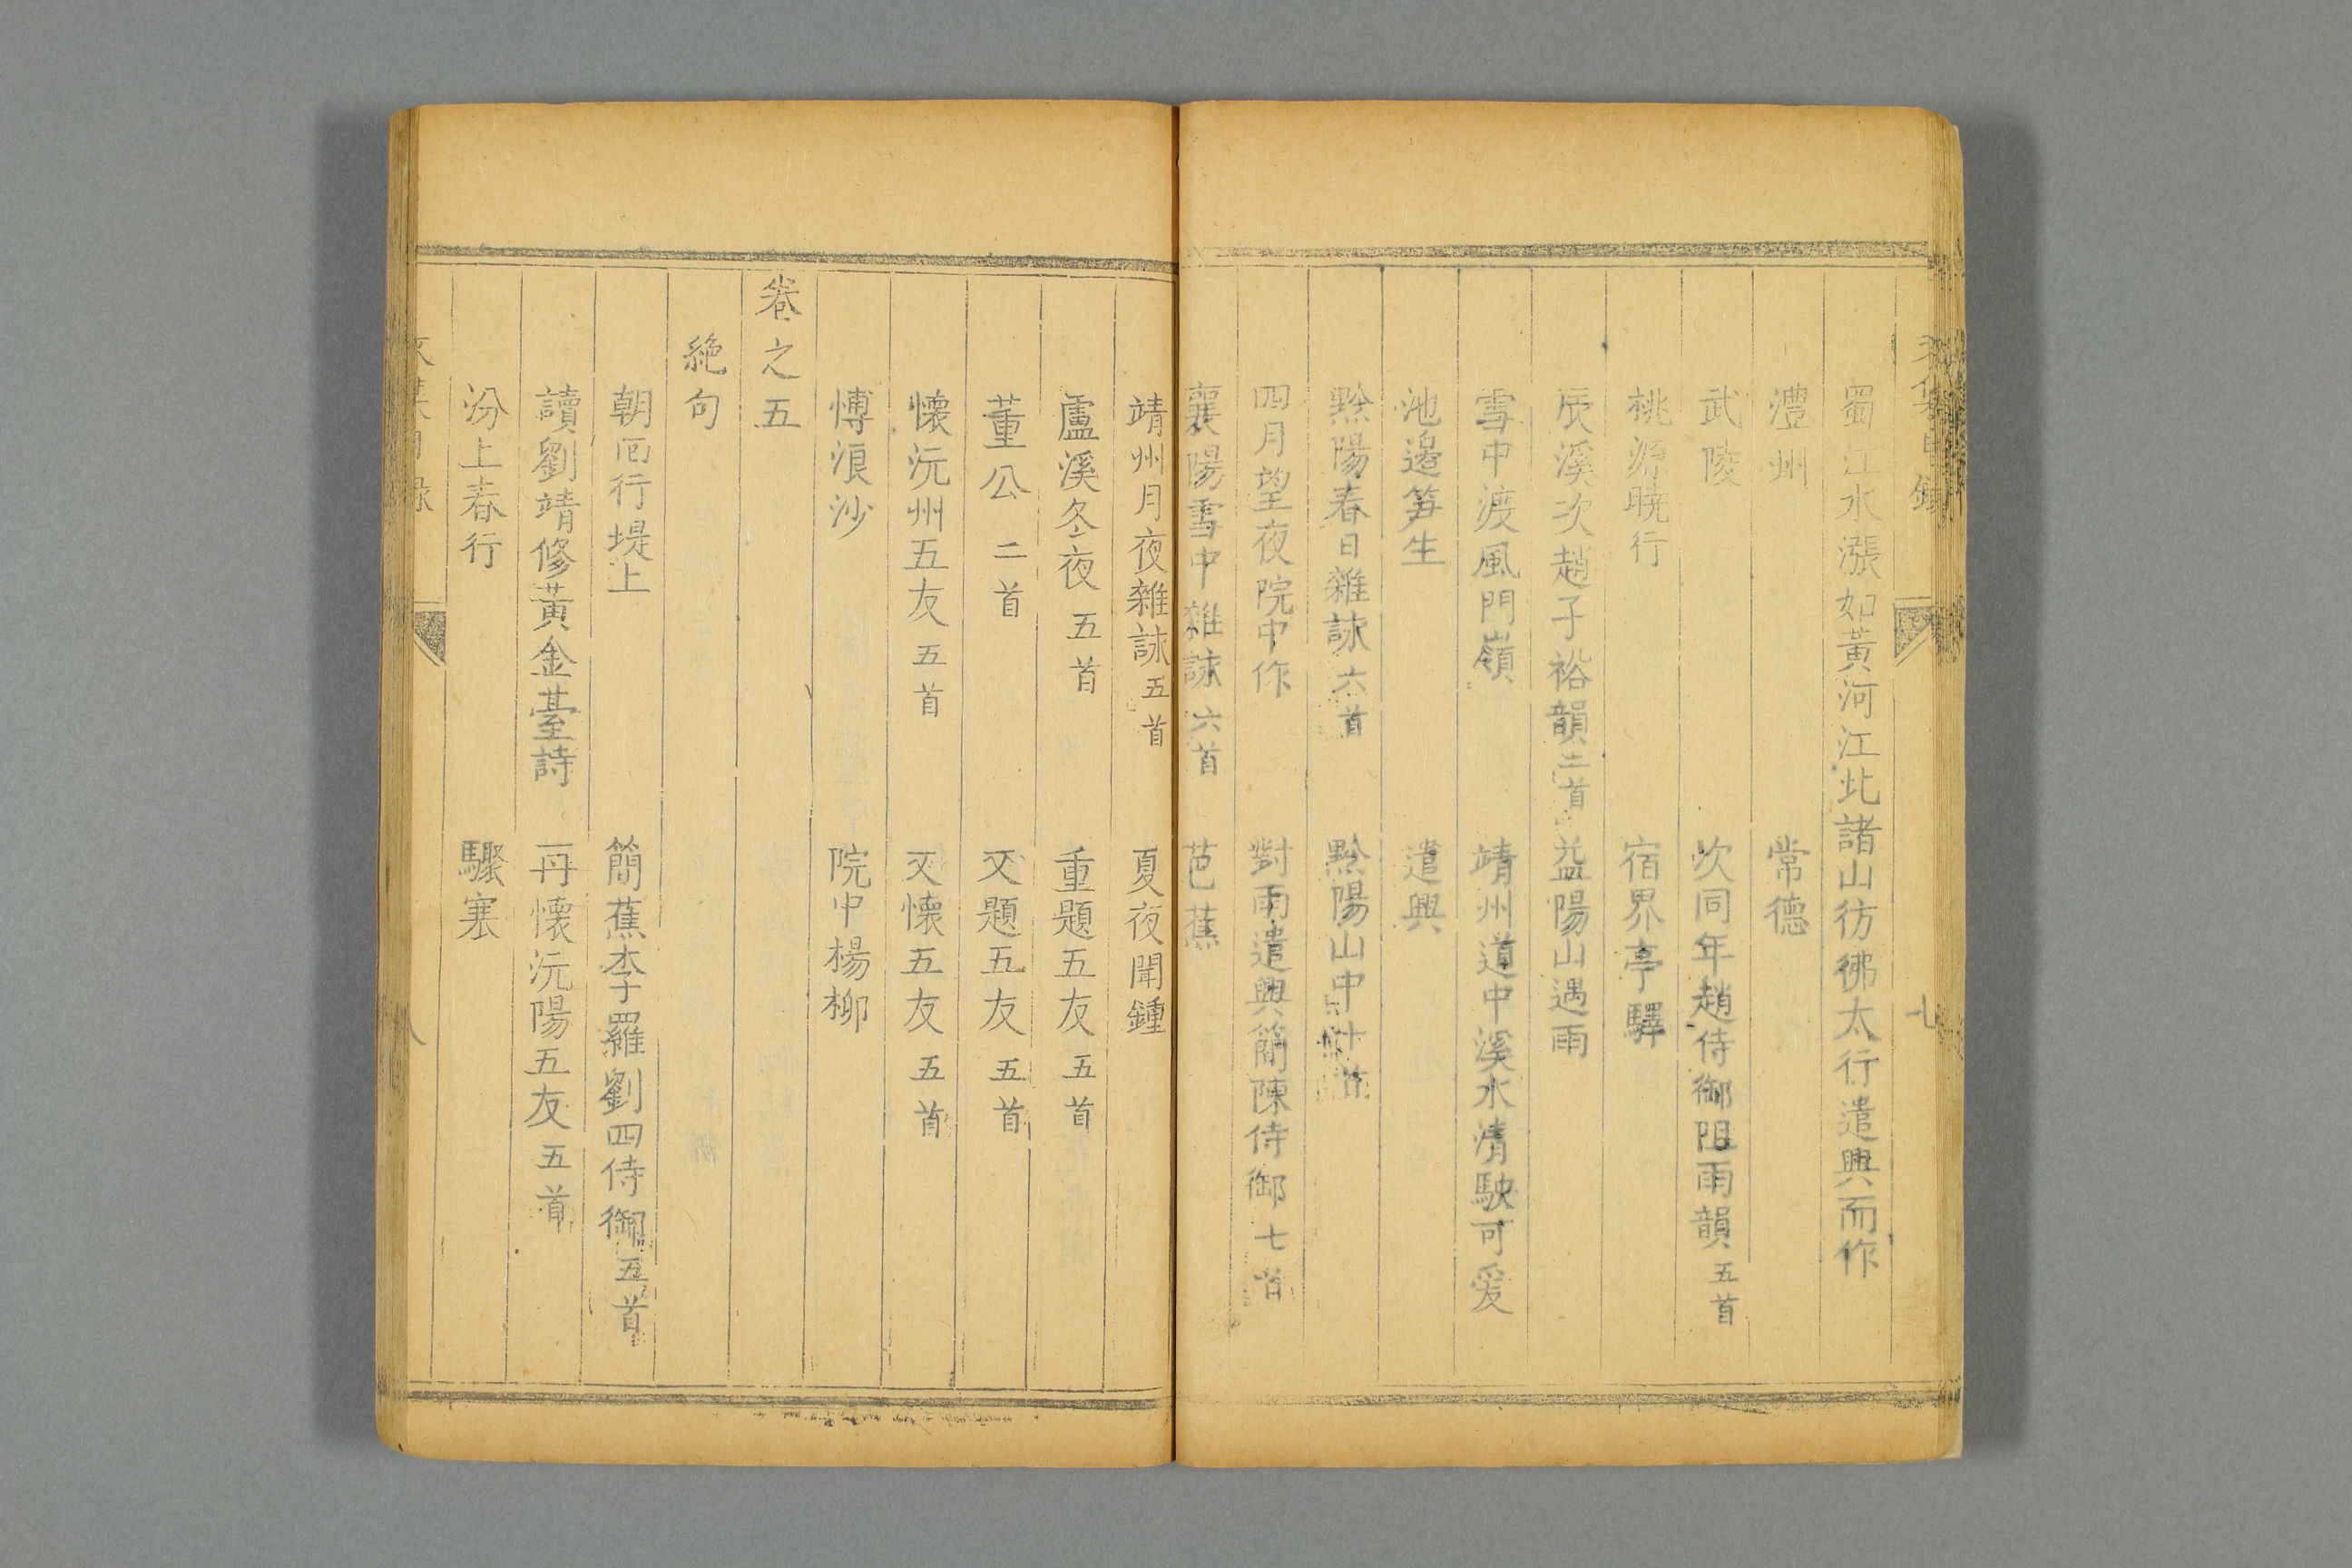 蜀江水漲如黃河江北諸山彷彿太行遣興而作
澧州 常德
武陵 次同年趙侍御阻雨韻五首
桃源曉行 宿界亭驛
辰溪次趙子裕韻二首 益陽山遇雨
雪中渡風門嶺 靖州道中溪水清駛可爱
池邉笋生 遣興
黔陽春日雜詠六首 黔陽山中廿首
四月望夜院中作 對雨遣興簡陳侍御七首
襄陽雪中雜詠六首 芭蕉
靖州月夜雜詠五首 夏夜聞鍾
盧溪冬夜五首 重題五友五首
董公二首 又題五友五首
懷沅州五友五首 又懷五友五首
博浪沙 院中楊柳
卷之五
絶句
朝邑行堤上 簡蕉李羅劉四侍御五首
讀劉靖修黃金臺詩 再懷沅陽五友五首
汾上春行 驟寒